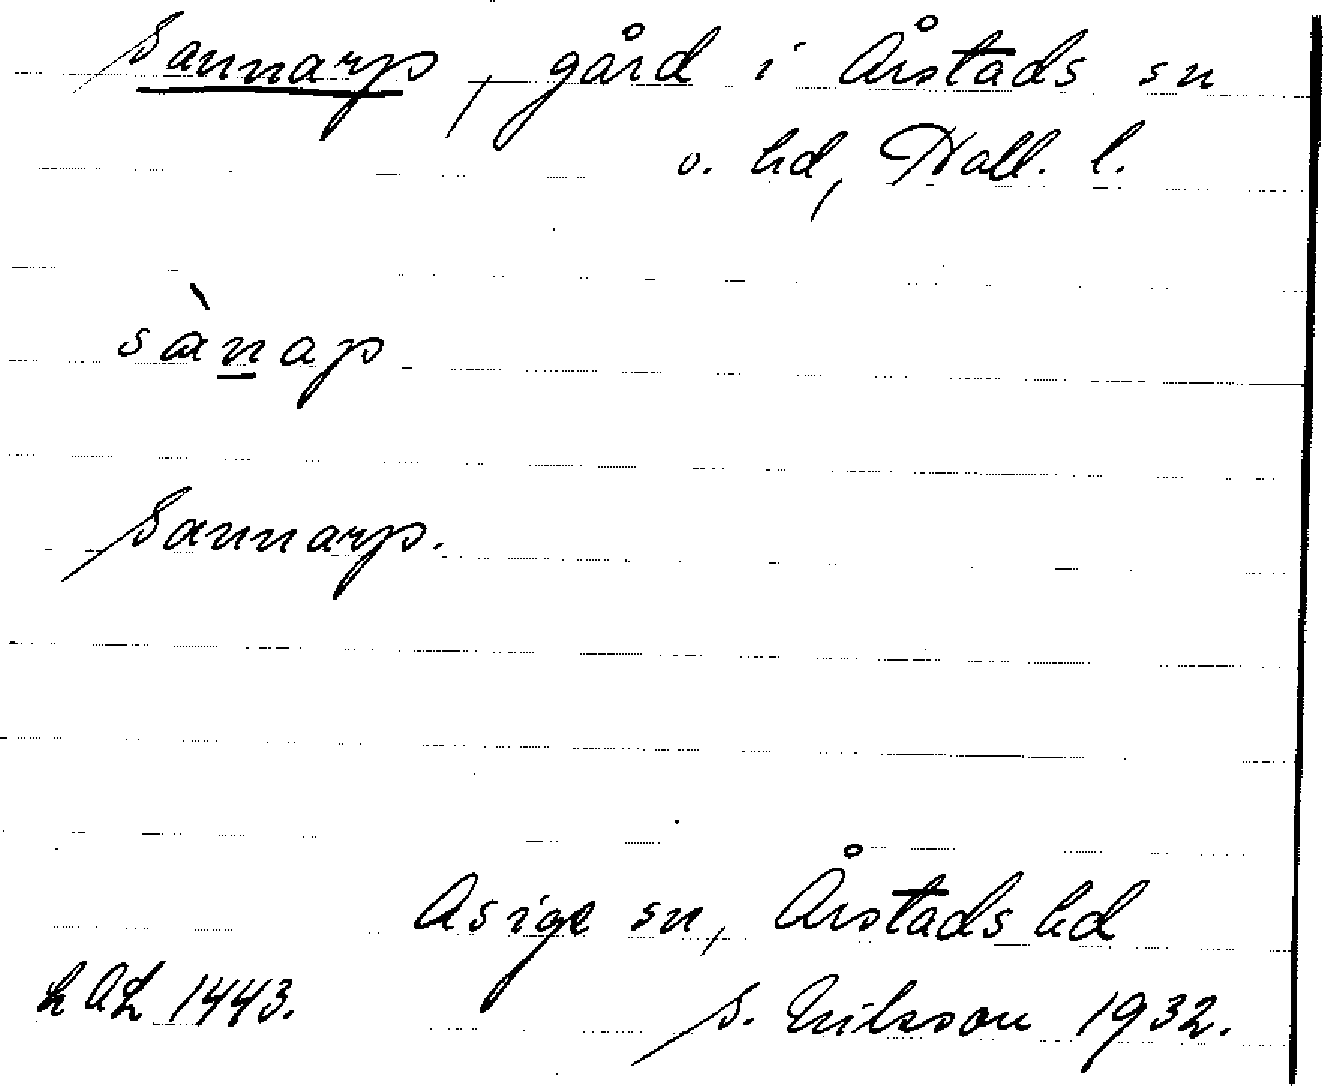 Sannarp, gård i Årstads sn
o. hd, Hall. l.
sànap
Sannarp.
Asige sn, Årstads hd
LAL 1443.
S. Nilsson 1932.